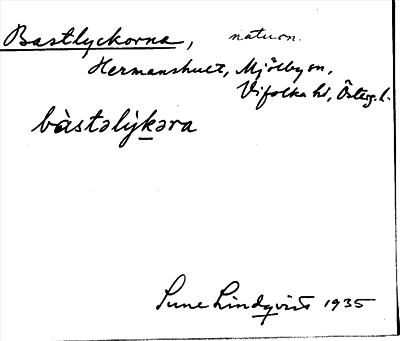 Bastlyckorna, naturn.
Hermanshult, Mjölby sn,
Vifolka hd, Österg. l.
bàstəlýk̲əra
Sune Lindqvist 1935